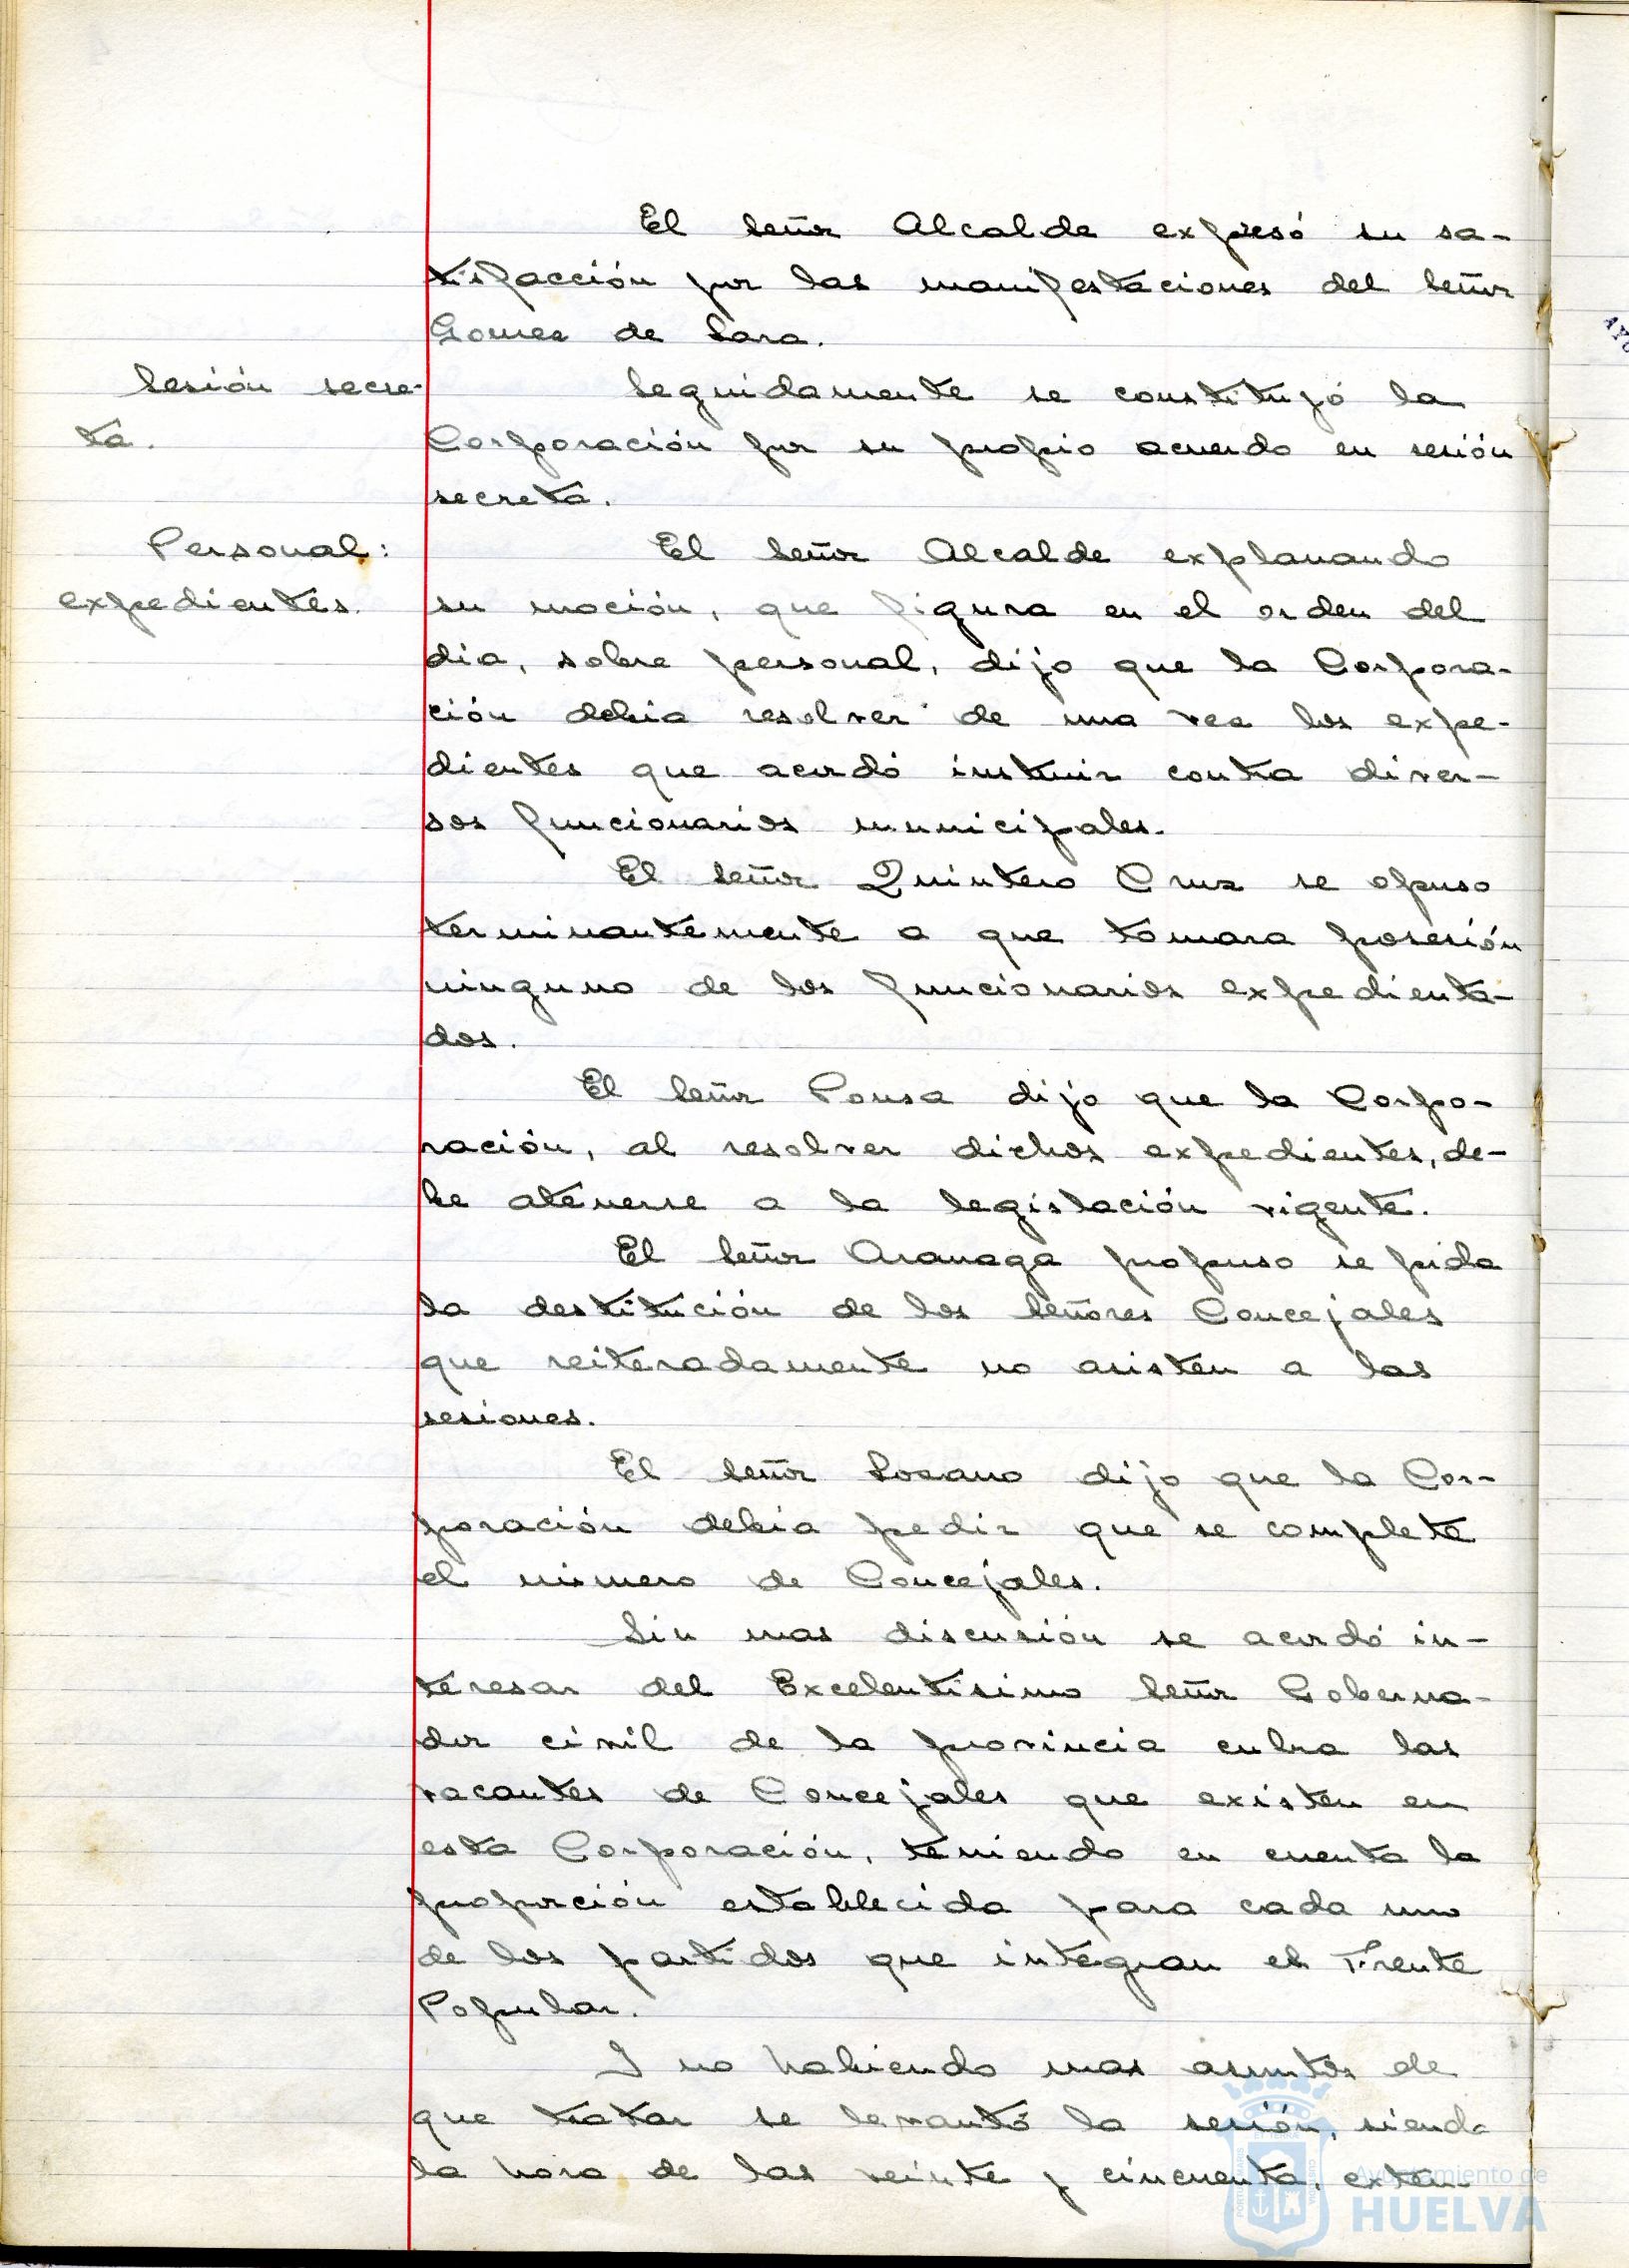 El Señor Alcalde expresó su sa-
tisfacción por las manifestaciones del Señor
Gomez de Lara.
Sesión secre-
ta.
Seguidamente se constituyó la
Corporación por su propio acuerdo en sesión
secreta.
Personal:
expedientes.
El Señor Alcalde explanando
su moción, que figura en el orden del
dia, sobre personal, dijo que la Corpora-
ción debia resolver de una vez los expe-
dientes que acordó instruir contra diver-
sos funcionarios municipales.
El Señor Quintero Cruz se opuso
terminantemente a que tomara posesión
ninguno de los funcionarios expedienta-
dos.
El Señor Ponsa dijo que la Corpo-
ración, al resolver dichos expedientes, de-
be atenerse a la legislación vigente.
El Señor Aranaga propuso se pida
la destitución de los Señores Concejales
que reiteradamente no asisten a las
sesiones.
El Señor Lozano dijo que la Cor-
poración debia pedir que se complete
el número de Concejales.
Sin mas discusión se acordó in-
teresar del Excelentísimo Señor Goberna-
dor civil de la provincia cubra las
vacantes de Concejales que existen en
esta Corporación, teniendo en cuenta la
proporción establecida para cada uno
de los partidos que integran el Frente
Popular.
Y no habiendo mas asuntos de
que tratar se levantó la sesión, siendo
la hora de las veinte y cincuenta, exten-
Ayuntamiento de
HUELVA